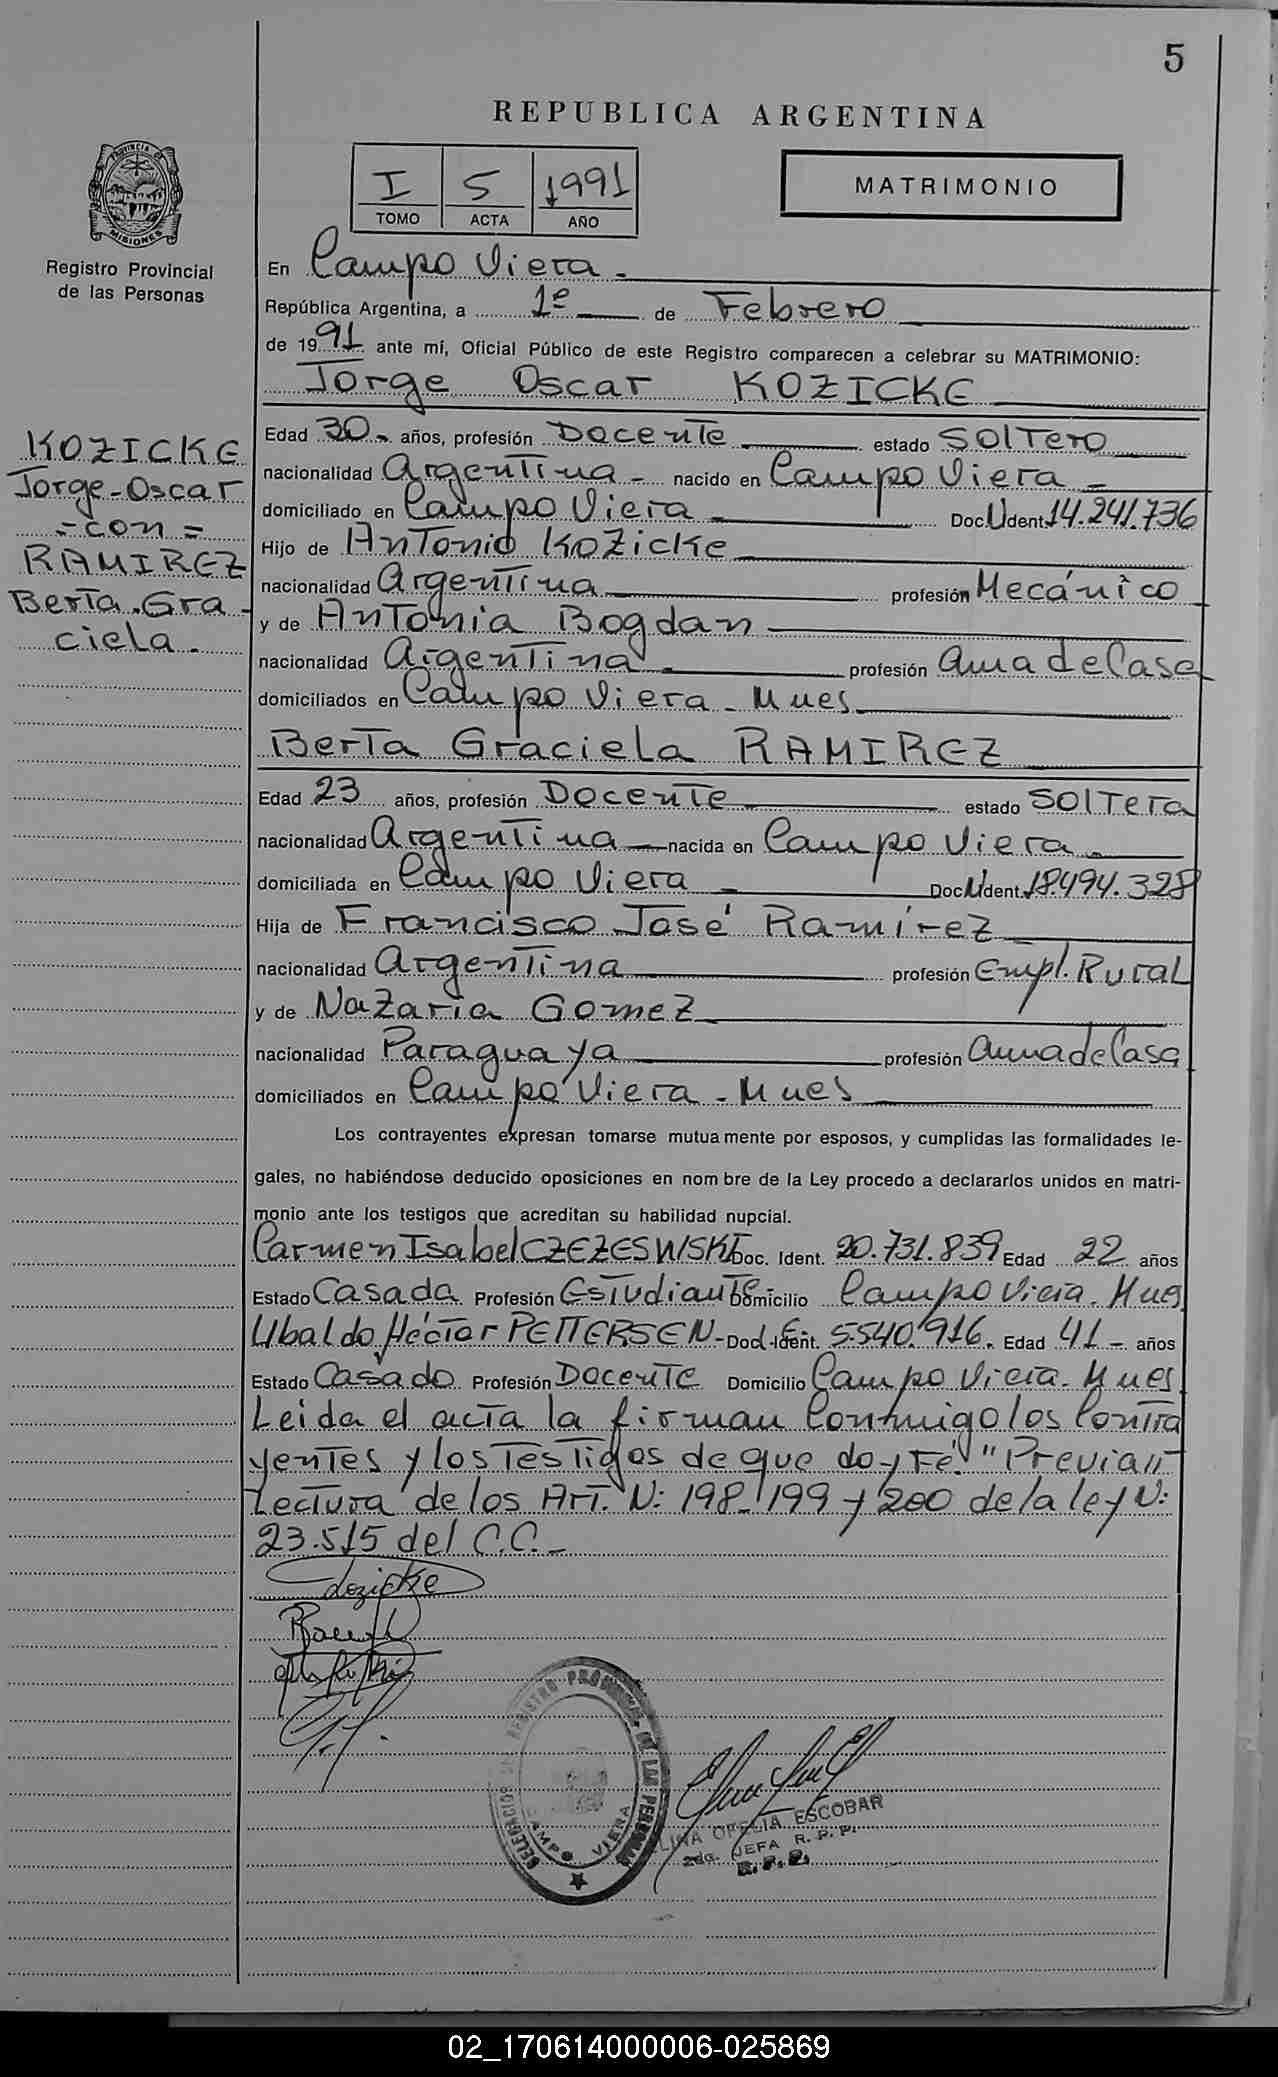 5
REPUBLICA ARGENTINA
PROVINCIA DE
MISIONES
Registro Provincial
de las Personas
I 5 1991
TOMO ACTA AÑO
MATRIMONIO
En Campo Viera.
República Argentina, a 1º de Febrero
de 1991 ante mí, Oficial Público de este Registro comparecen a celebrar su MATRIMONIO:
Jorge Oscar KOZICKE
KOZICKE
Jorge-Oscar
=con=
RAMIREZ
Berta.Gra-
ciela.
Edad 30.- años, profesión Docente estado Soltero
nacionalidad Argentina- nacido en Campo Viera-
domiciliado en Campo Viera- Doc.U Ident. 14.241.736
Hijo de Antonio Kozicke
nacionalidad Argentina profesión Mecánico
y de Antonia Bogdan
nacionalidad Argentina. profesión Ama de Casa
domiciliados en Campo Viera-Mnes
Berta Graciela RAMIREZ
Edad 23 años, profesión Docente estado Soltera
nacionalidad Argentina nacida en Campo Viera.
domiciliada en Campo Viera- Doc.U Ident. 18.494.328
Hija de Francisco José Ramírez
nacionalidad Argentina profesión Empl. Rural
y de Nazaria Gomez
nacionalidad Paraguaya profesión Ama de Casa
domiciliados en Campo Viera-Mnes
Los contrayentes expresan tomarse mutuamente por esposos, y cumplidas las formalidades le-
gales, no habiéndose deducido oposiciones en nombre de la Ley procedo a declararlos unidos en matri-
monio ante los testigos que acreditan su habilidad nupcial.
Carmen Isabel CZEZESWISKI Doc. Ident. 20.731.839 Edad 22 años
Estado Casada Profesión Estudiante- Domicilio Campo Viera.Mnes
Ubaldo Héctor PETTERSEN- Doc. Ident. 5.540.916. Edad 41- años
Estado Casado Profesión Docente Domicilio Campo Viera.Mnes
Leida el acta la firman Conmigo los Contra
yentes y los Testigos de que doy Fé. "Previa"
Lectura de los Art. N: 198-199 y 200 de la ley N:
23.515 del C.C.-
Kozicke
DELEGACION DEL REGISTRO PROVINCIAL DE LAS PERSONAS
CAMPO VIERA
LINA OFELIA ESCOBAR
JEFA R. P. P.
02_170614000006-025869